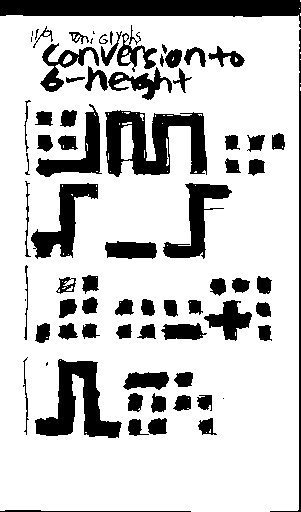 11/9 Uni Glyphs
conversion to
6-height